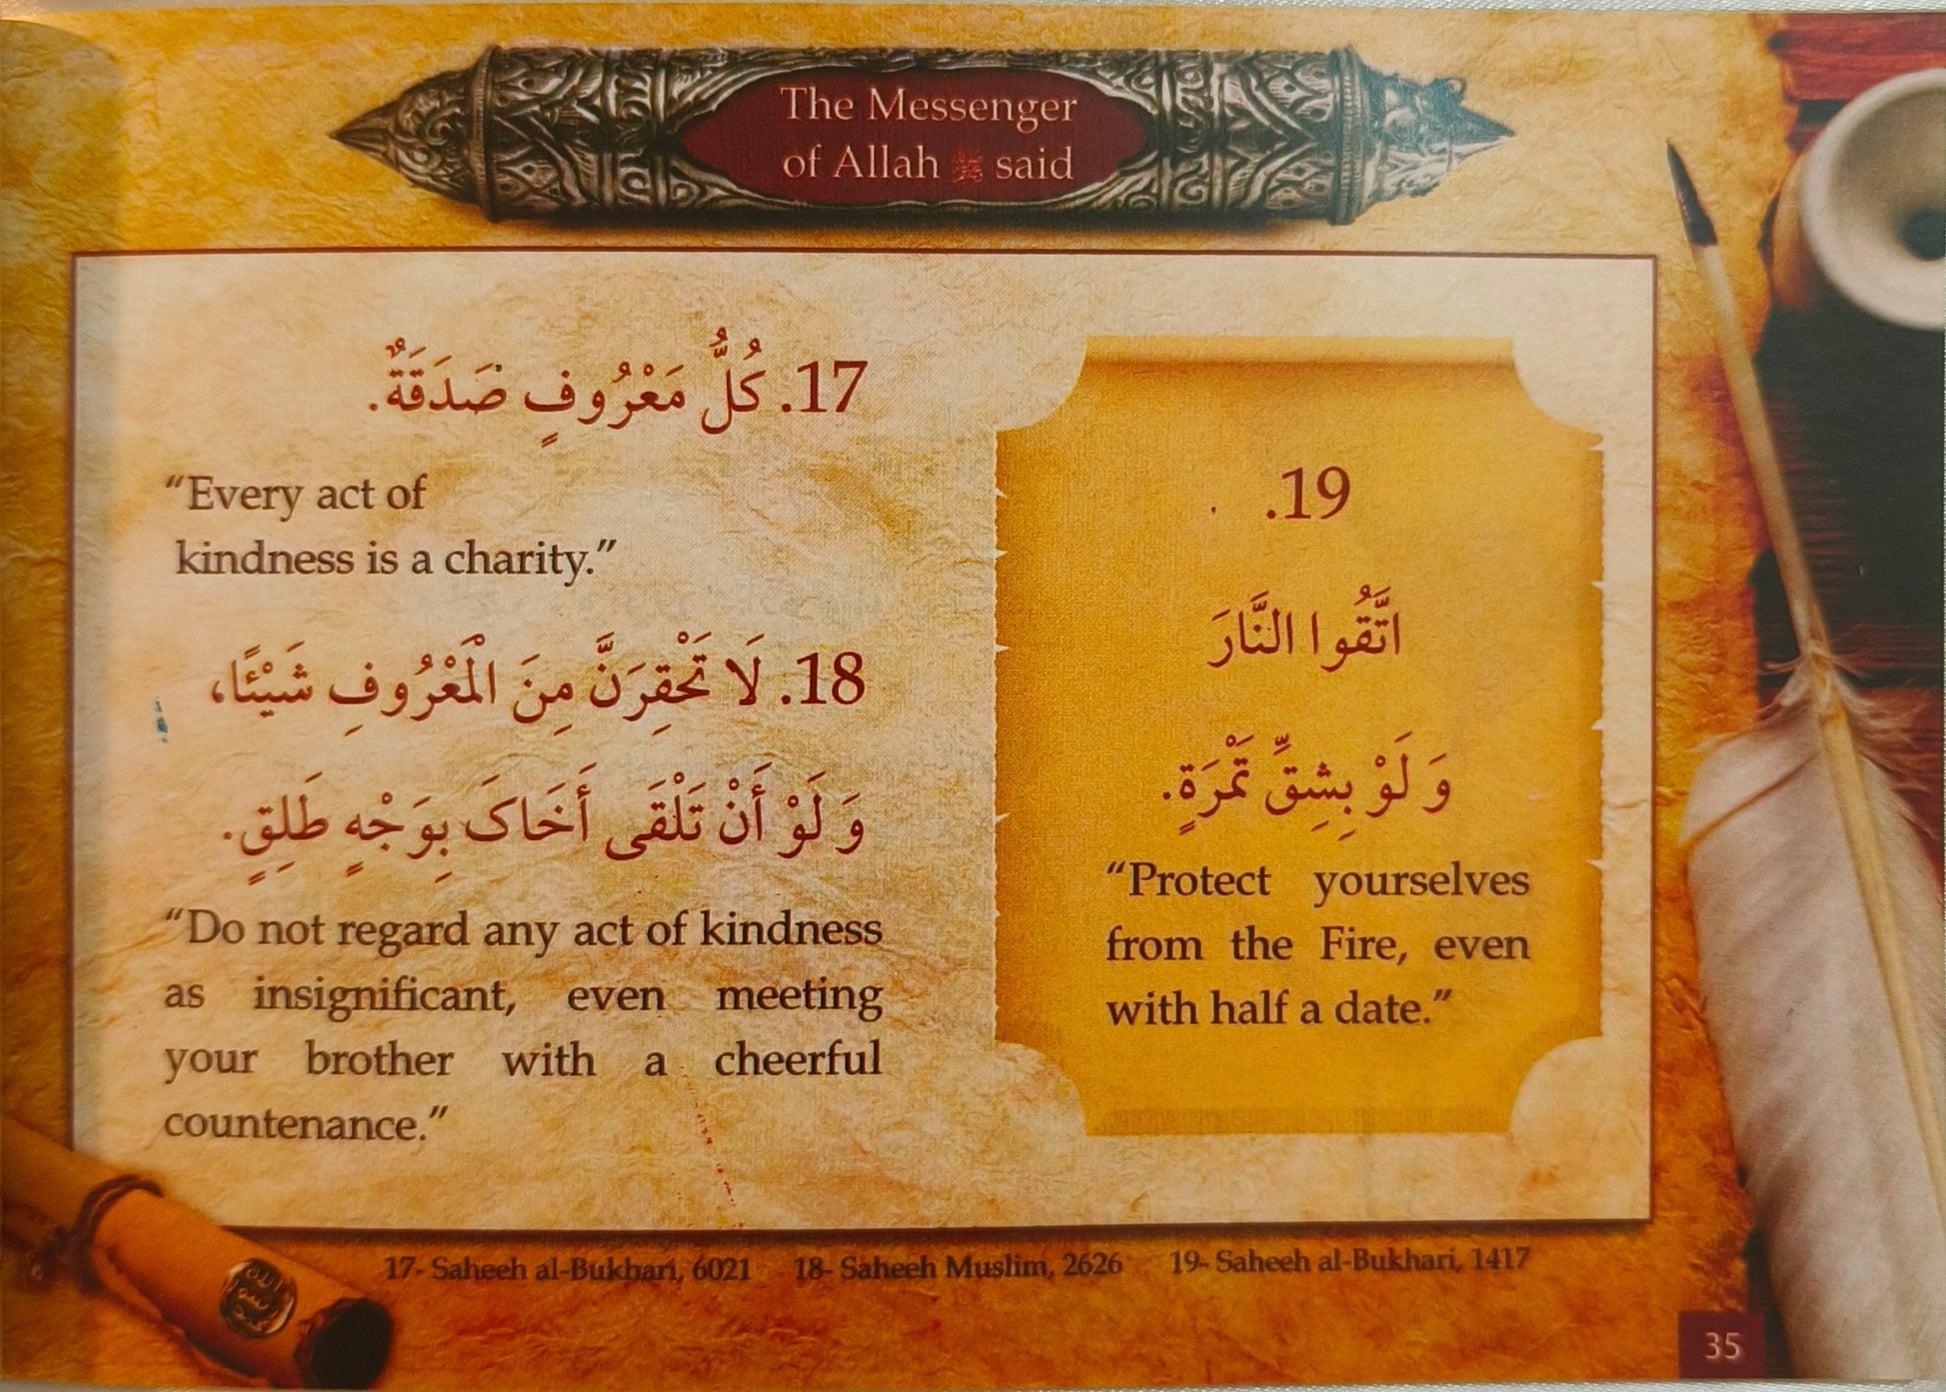 The Messenger
of Allah ﷺ said
17. كُلُّ مَعْرُوفٍ صَدَقَةٌ.
“Every act of
kindness is a charity.”
18. لَا تَحْقِرَنَّ مِنَ الْمَعْرُوفِ شَيْئًا،
وَ لَوْ أَنْ تَلْقَى أَخَاکَ بِوَجْهٍ طَلِقٍ.
“Do not regard any act of kindness
as insignificant, even meeting
your brother with a cheerful
countenance.”
19.
اتَّقُوا النَّارَ
وَ لَوْ بِشِقِّ تَمْرَةٍ.
“Protect yourselves
from the Fire, even
with half a date.”
17- Saheeh al-Bukhari, 6021 18- Saheeh Muslim, 2626 19- Saheeh al-Bukhari, 1417
35